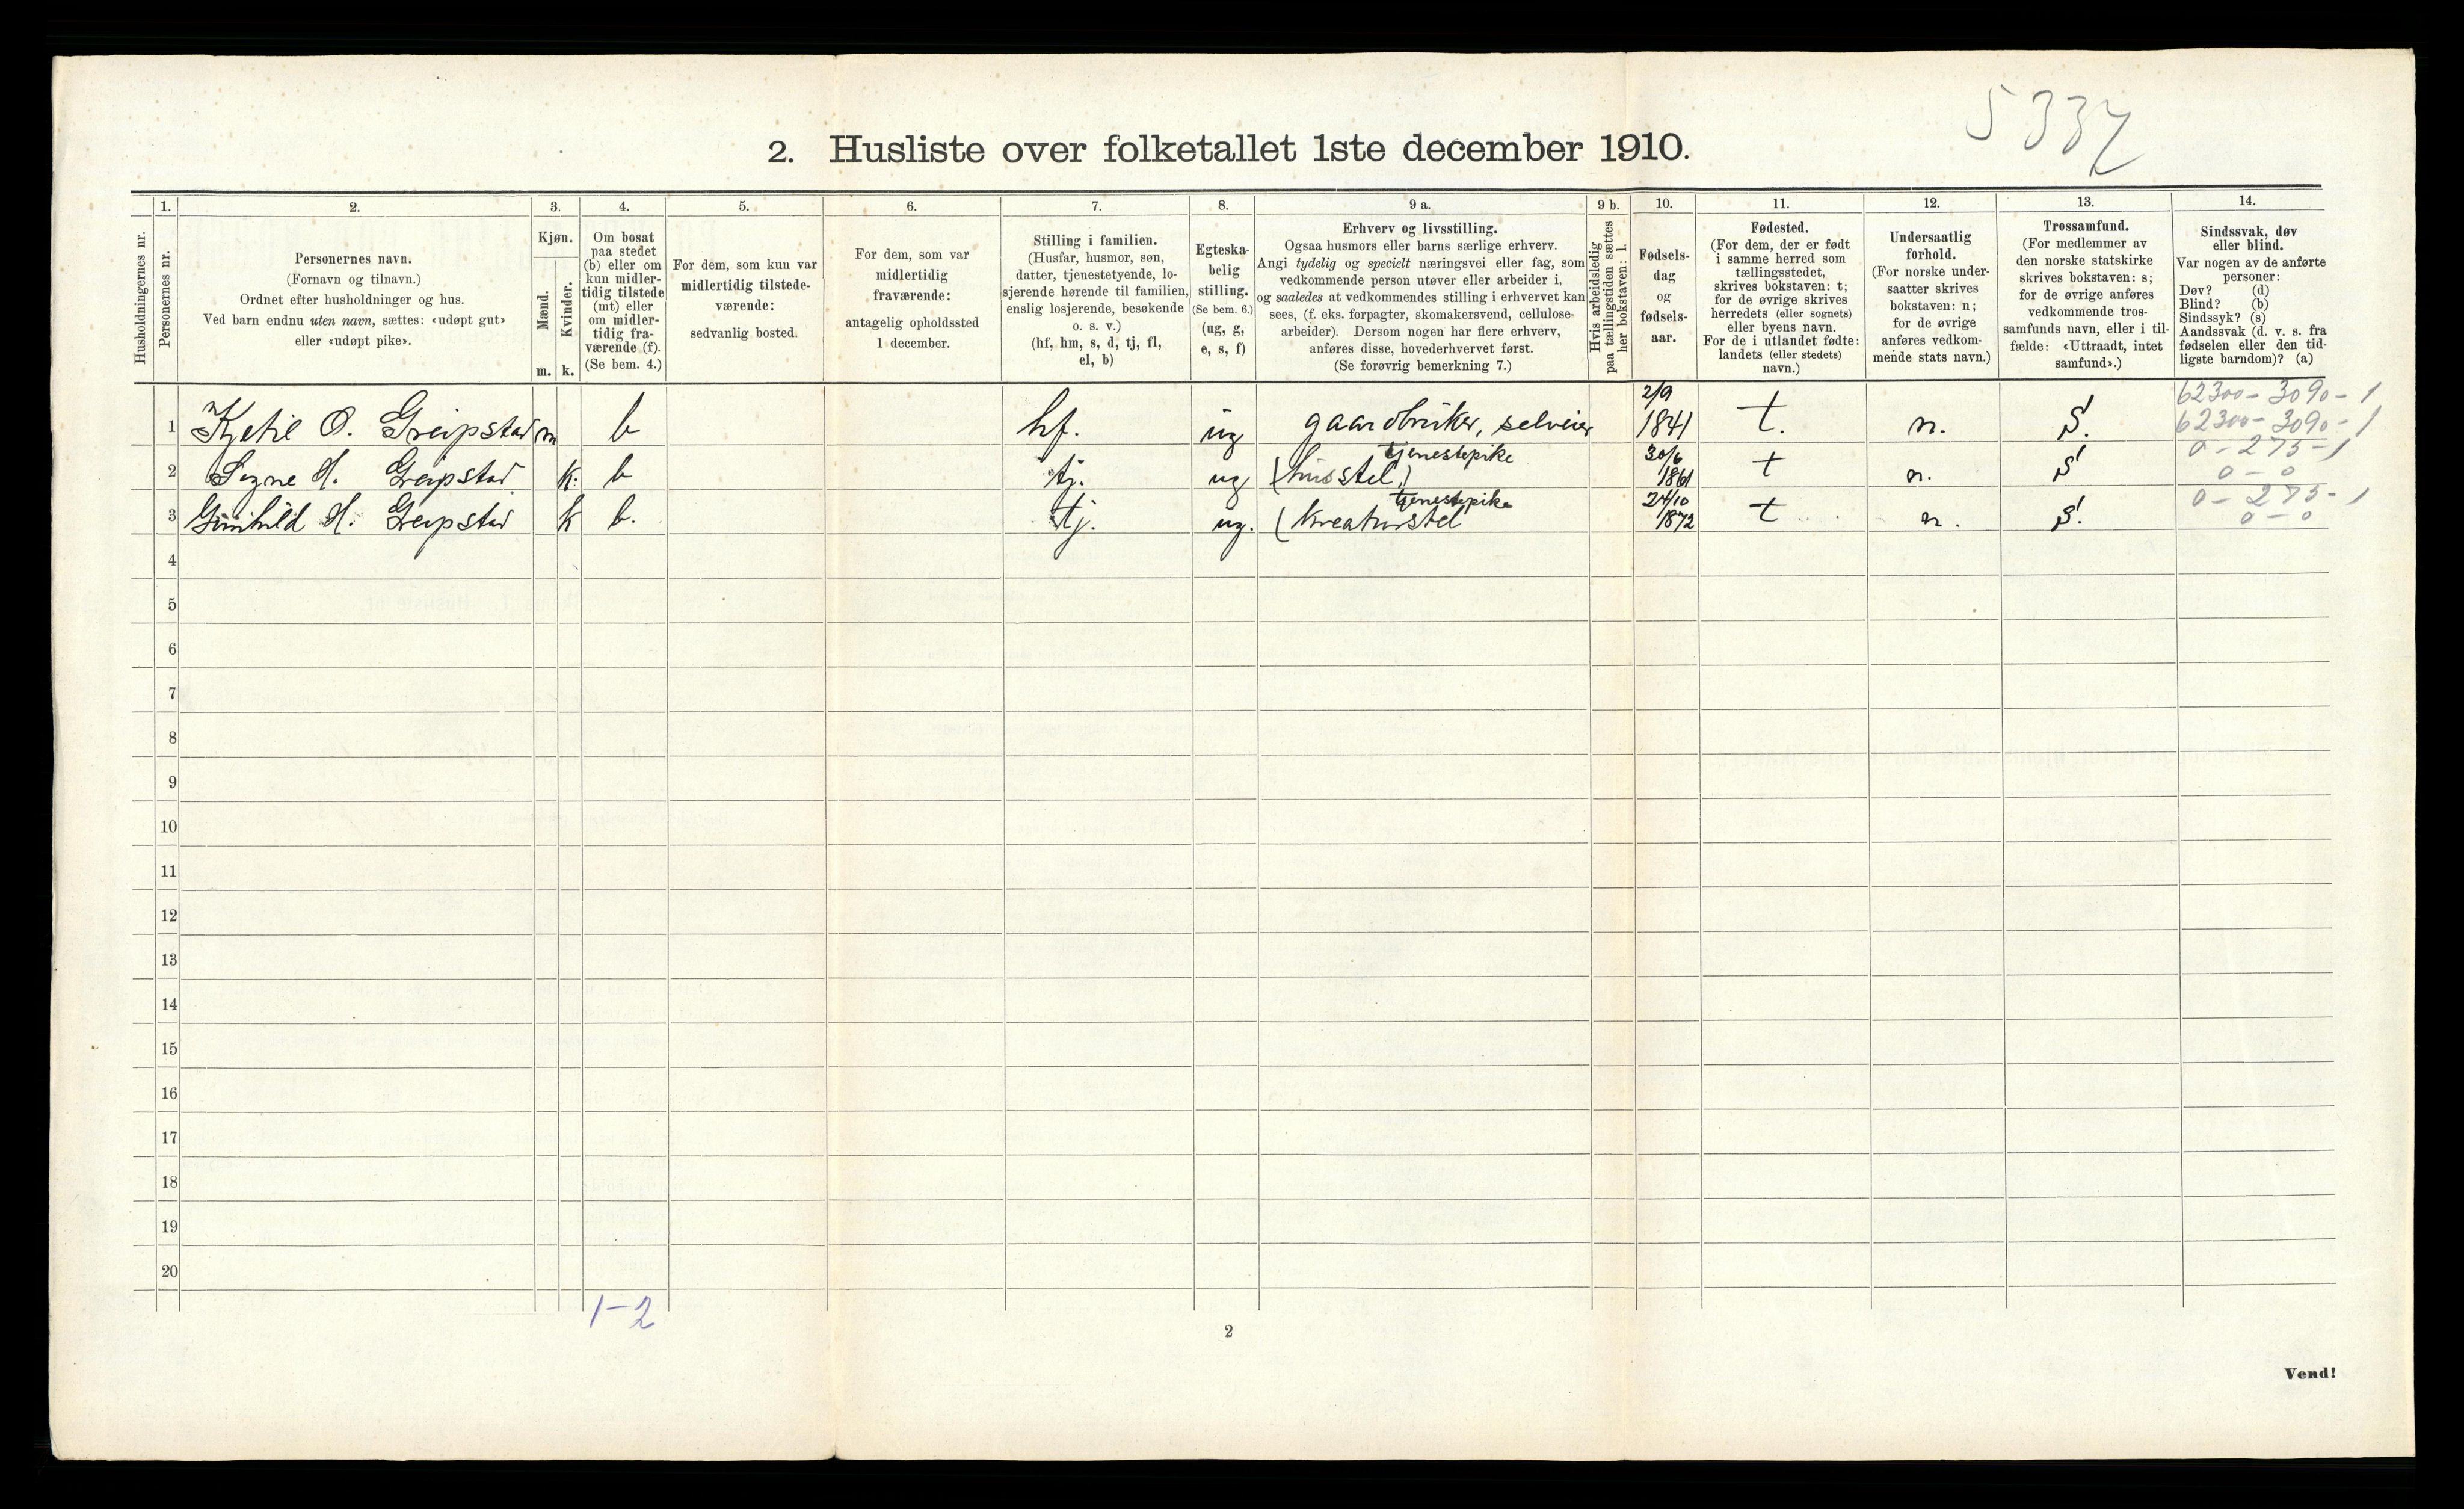 5337
2. Husliste over folketallet 1ste december 1910.
Husholdningernes nr.
1.
Personernes nr.
2.
Personernes navn.
(Fornavn og tilnavn.)
Ordnet efter husholdninger og hus.
Ved barn endnu uten navn, sættes: «udøpt gut»
eller «udøpt pike».
3.
Kjøn.
Mænd.
Kvinder.
m. k.
4.
Om bosat
paa stedet
(b) eller om
kun midler-
tidig tilstede
(mt) eller
om midler-
tidig fra-
værende (f).
(Se bem. 4.)
5.
For dem, som kun var
midlertidig tilstede-
værende:
sedvanlig bosted.
6.
For dem, som var
midlertidig
fraværende:
antagelig opholdssted
1 december.
7.
Stilling i familien.
(Husfar, husmor, søn,
datter, tjenestetyende, lo-
sjerende hørende til familien,
enslig losjerende, besøkende
o. s. v.)
(hf, hm, s, d, tj, fl,
el, b)
8.
Egteska-
belig
stilling.
(Se bem. 6.)
(ug, g,
e, s, f)
9 a.
Erhverv og livsstilling.
Ogsaa husmors eller barns særlige erhverv.
Angi tydelig og specielt næringsvei eller fag, som
vedkommende person utøver eller arbeider i,
og saaledes at vedkommendes stilling i erhvervet kan
sees, (f. eks. forpagter, skomakersvend, cellulose-
arbeider). Dersom nogen har flere erhverv,
anføres disse, hovederhvervet først.
(Se forøvrig bemerkning 7.)
9 b.
Hvis arbeidsledig
paa tællingstiden sættes
her bokstaven: l.
10.
Fødsels-
dag
og
fødsels-
aar.
11.
Fødested.
(For dem, der er født
i samme herred som
tællingsstedet,
skrives bokstaven: t;
for de øvrige skrives
herredets (eller sognets)
eller byens navn.
For de i utlandet fødte:
landets (eller stedets)
navn.)
12.
Undersaatlig
forhold.
(For norske under-
saatter skrives
bokstaven: n;
for de øvrige
anføres vedkom-
mende stats navn.)
13.
Trossamfund.
(For medlemmer av
den norske statskirke
skrives bokstaven: s;
for de øvrige anføres
vedkommende tros-
samfunds navn, eller i til-
fælde: «Uttraadt, intet
samfund».)
14.
Sindssvak, døv
eller blind.
Var nogen av de anførte
personer:
Døv? (d)
Blind? (b)
Sindssyk? (s)
Aandssvak (d. v. s. fra
fødselen eller den tid-
ligste barndom)? (a)
1 Kjetil O. Greipstad m b hf. ug gaardbruker, selveier 2/9 1841 t. n. S. 62300 - 3090 - 1
62300 - 3090 - 1
2 Signe H. Greipstad k. b tj. ug tjenestepike (husstel) 30/6 1861 t n. S 0 - 275 - 1
0 - 0
3 Gunhild H. Greipstad k b. tj. ug. tjenestepike (kreaturstel 24/10 1872 t n. S. 0 - 275 - 1
0 - 0
4
5
6
7
8
9
10
11
12
13
14
15
16
17
18
19
20
1-2
2
Vend!